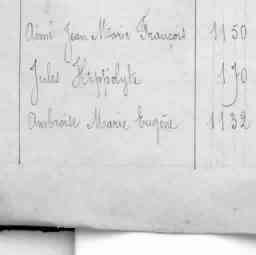 Aimé Jean Marie François 1150
Jules Hippolyte 170
Ambroise Marie Eugène 1132